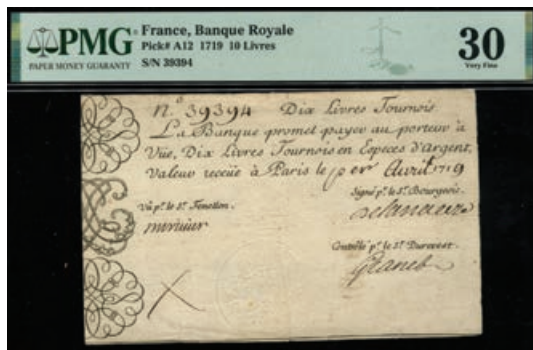 PMG
PAPER MONEY GUARANTY
France, Banque Royale
Pick# A12 1719 10 Livres
S/N 39394
30
Very Fine
N.º 39394 Dix Livres Tournois
La Banque promet payer au porteur à
Vüe, Dix Livres Tournois en Especes d'Argent,
Valeur receüe à Paris le per Avril 1719
Signé p.r le S.r Bourgeois.
Vû p.r le S.r Fenellon.
Delanauze
Controllé p.r le S.r Durevest.
Granet